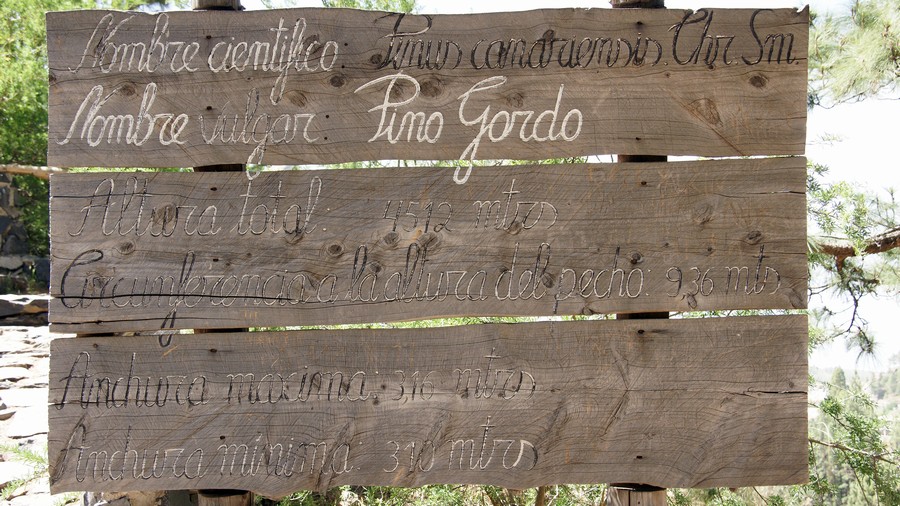 Nombre científico: Pinus canariensis. Chr. Sm.
Nombre vulgar Pino Gordo
Altura total: 45,12 mtrs
Circunferencia a la altura del pecho: 9,36 mts
Anchura maxima: 3,16 mtrs
Anchura mínima: 3,10 mtrs